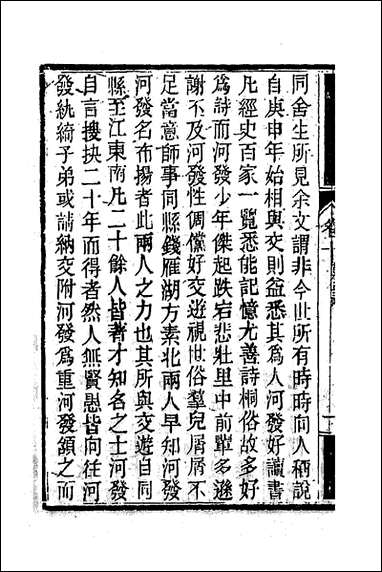 同舍生所見余文謂非今世所有時時向人稱說
自庚申年始相與交則益悉其為人河發好讀書
凡經史百家一覽悉能記憶尤善詩桐俗故多好
為詩而河發少年傑起跌宕悲壯里中前輩多遜
謝不及河發性倜儻好交遊視世俗羣兒屑屑不
足當意師事同縣錢雁湖方素北兩人早知河發
河發名布揚者此兩人之力也其所與交遊自同
縣至江東南凡二十餘人皆者才知名之士河發
自言搜抉二十年而得者然人無賢愚皆向往河
發紈綺子弟或請納交附河發為重河發頷之而